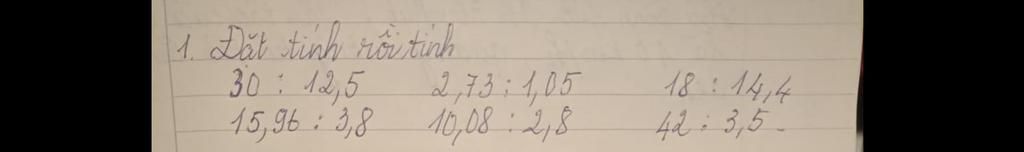 1. Đặt tính rồi tính
30 : 12,5 2,73 : 1,05 18 : 14,4
15,96 : 3,8 10,08 : 2,8 42 : 3,5